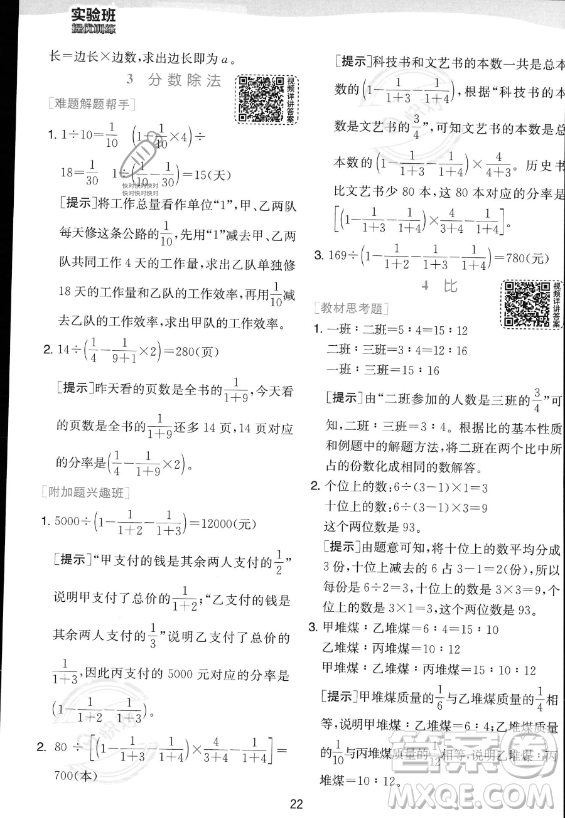 实验班
提优训练
长=边长×边数,求出边长即为a。
3 分数除法
视频讲解答案
[难题解题帮手]
1. 1÷10=1/10 (1/10-1/10×4)÷
18=1/30 1÷(1/10-1/30)=15(天)
[提示]将工作总量看作单位“1”,甲、乙两队
每天修这条公路的1/10,先用“1”减去甲、乙两
队共同工作 4 天的工作量,求出乙队单独工作
18 天的工作量和乙队的工作效率,用1/10减
去乙队的工作效率,求出甲队的工作效率。
2. 14÷(1/4-1/(9+1)×2)=280(页)
[提示]昨天看的页数是全书的1/(1+9),今天看
的页数是全书的1/(1+9)还多 14 页,14 页对应
的分率是(1/4-1/(1+9)×2)。
[附加题兴趣班]
1. 5000÷(1-1/(1+2)-1/(1+3))=12000(元)
[提示]“甲支付的钱是其余两人支付的1/2”
说明甲支付了总价的1/(1+2);“乙支付的钱是
其余两人支付的1/3”说明乙支付了总价的
1/(1+3),因此丙支付的 5000 元对应的分率是
(1-1/(1+2)-1/(1+3))。
2. 80÷[(1-1/(1+3)-1/(1+4))×3/4-1/(1+4)]=
700(本)
[提示]根据“科技书和文艺书的本数一共是总本
数的(1-1/(1+3)-1/(1+4))”,根据“科技书的本
数是文艺书的3/4”,可知文艺书的本数占总
本数的(1-1/(1+3)-1/(1+4))×4/(3+4)。历史书
比文艺书少 80 本,这 80 本对应的分率是
[(1-1/(1+3)-1/(1+4))×4/(3+4)-1/(1+4)]。
3. 169÷(1-1/(1+2)-1/(1+3)-1/(1+4))=780(元)
4 比
视频讲解答案
[教材思考题]
1. 一班:二班=5:4=15:12
二班:三班=3:4=12:16
一班:三班=15:16
[提示]由“二班参加的人数是三班的3/4”可
知,二班:三班=3:4。根据比的基本性质
和例题中的解题方法,将二班在两个比中所
占的份数化成相同的数解答。
2. 个位上的数:6÷(3-1)×1=3
十位上的数:6÷(3-1)×3=9
这个两位数是 93。
[提示]由题意可知,将十位上的数平均分成
3 份,十位上的数减去的 6 占 3-1=2(份),所以
每份是 6÷2=3,个位上的数是 3×1=3,
十位上的数是 3×3=9,这个两位数是 93。
3. 甲堆煤:乙堆煤=6:4=15:10
乙堆煤:丙堆煤=10:12
甲堆煤:丙堆煤=15:12
[提示]甲堆煤质量的1/6与乙堆煤的1/4相
等,说明甲堆煤:乙堆煤=6:4。乙堆煤质量
的1/10与丙堆煤的1/12相等,说明乙堆煤:丙
堆煤=10:12。
22